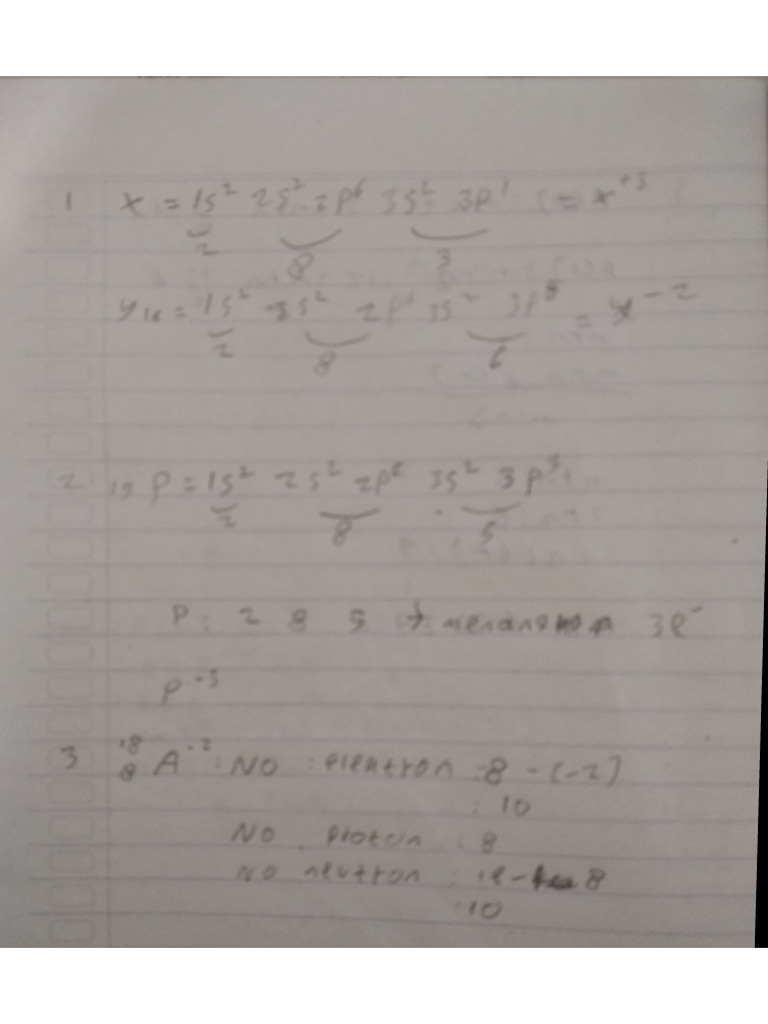 1 X = 1s² 2s² 2p⁶ 3s² 3p¹ = X⁺³
2 8 3
y₁₆ = 1s² 2s² 2p⁶ 3s² 3p⁸ = y⁻²
2 8 6
2 ₁₅P = 1s² 2s² 2p⁶ 3s² 3p³
2 8 5
P : 2 8 5 → menangkap 3e⁻
P⁻³
3 ¹⁸₈A⁻² : NO elektron : 8 - (-2)
: 10
NO proton : 8
NO neutron : 18 - 8
: 10